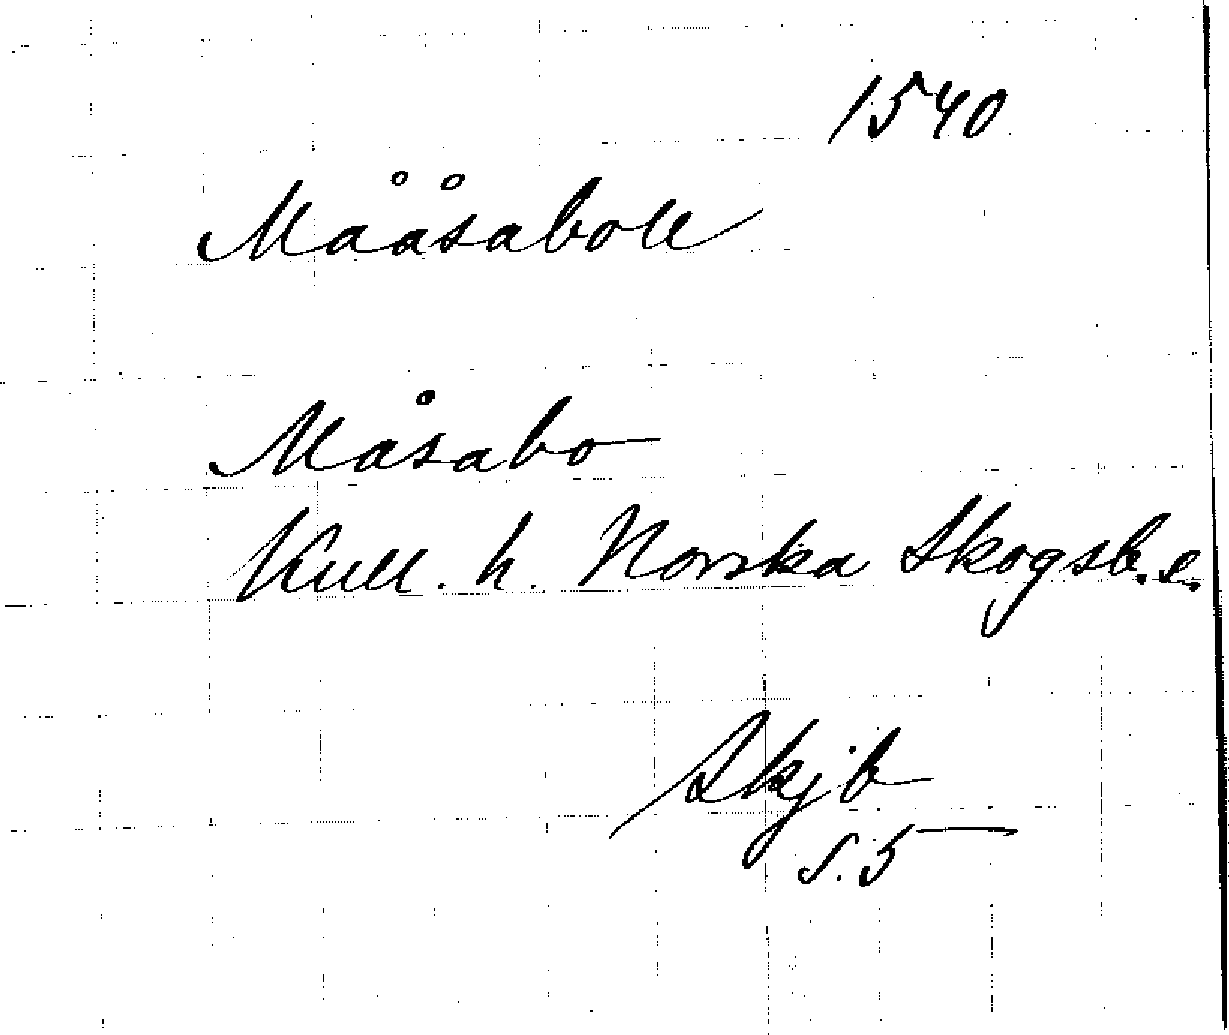 1540
Mååsaboll
Måsabo
Kull. h. Norska Skogsb. s.
Skjb
s. 5